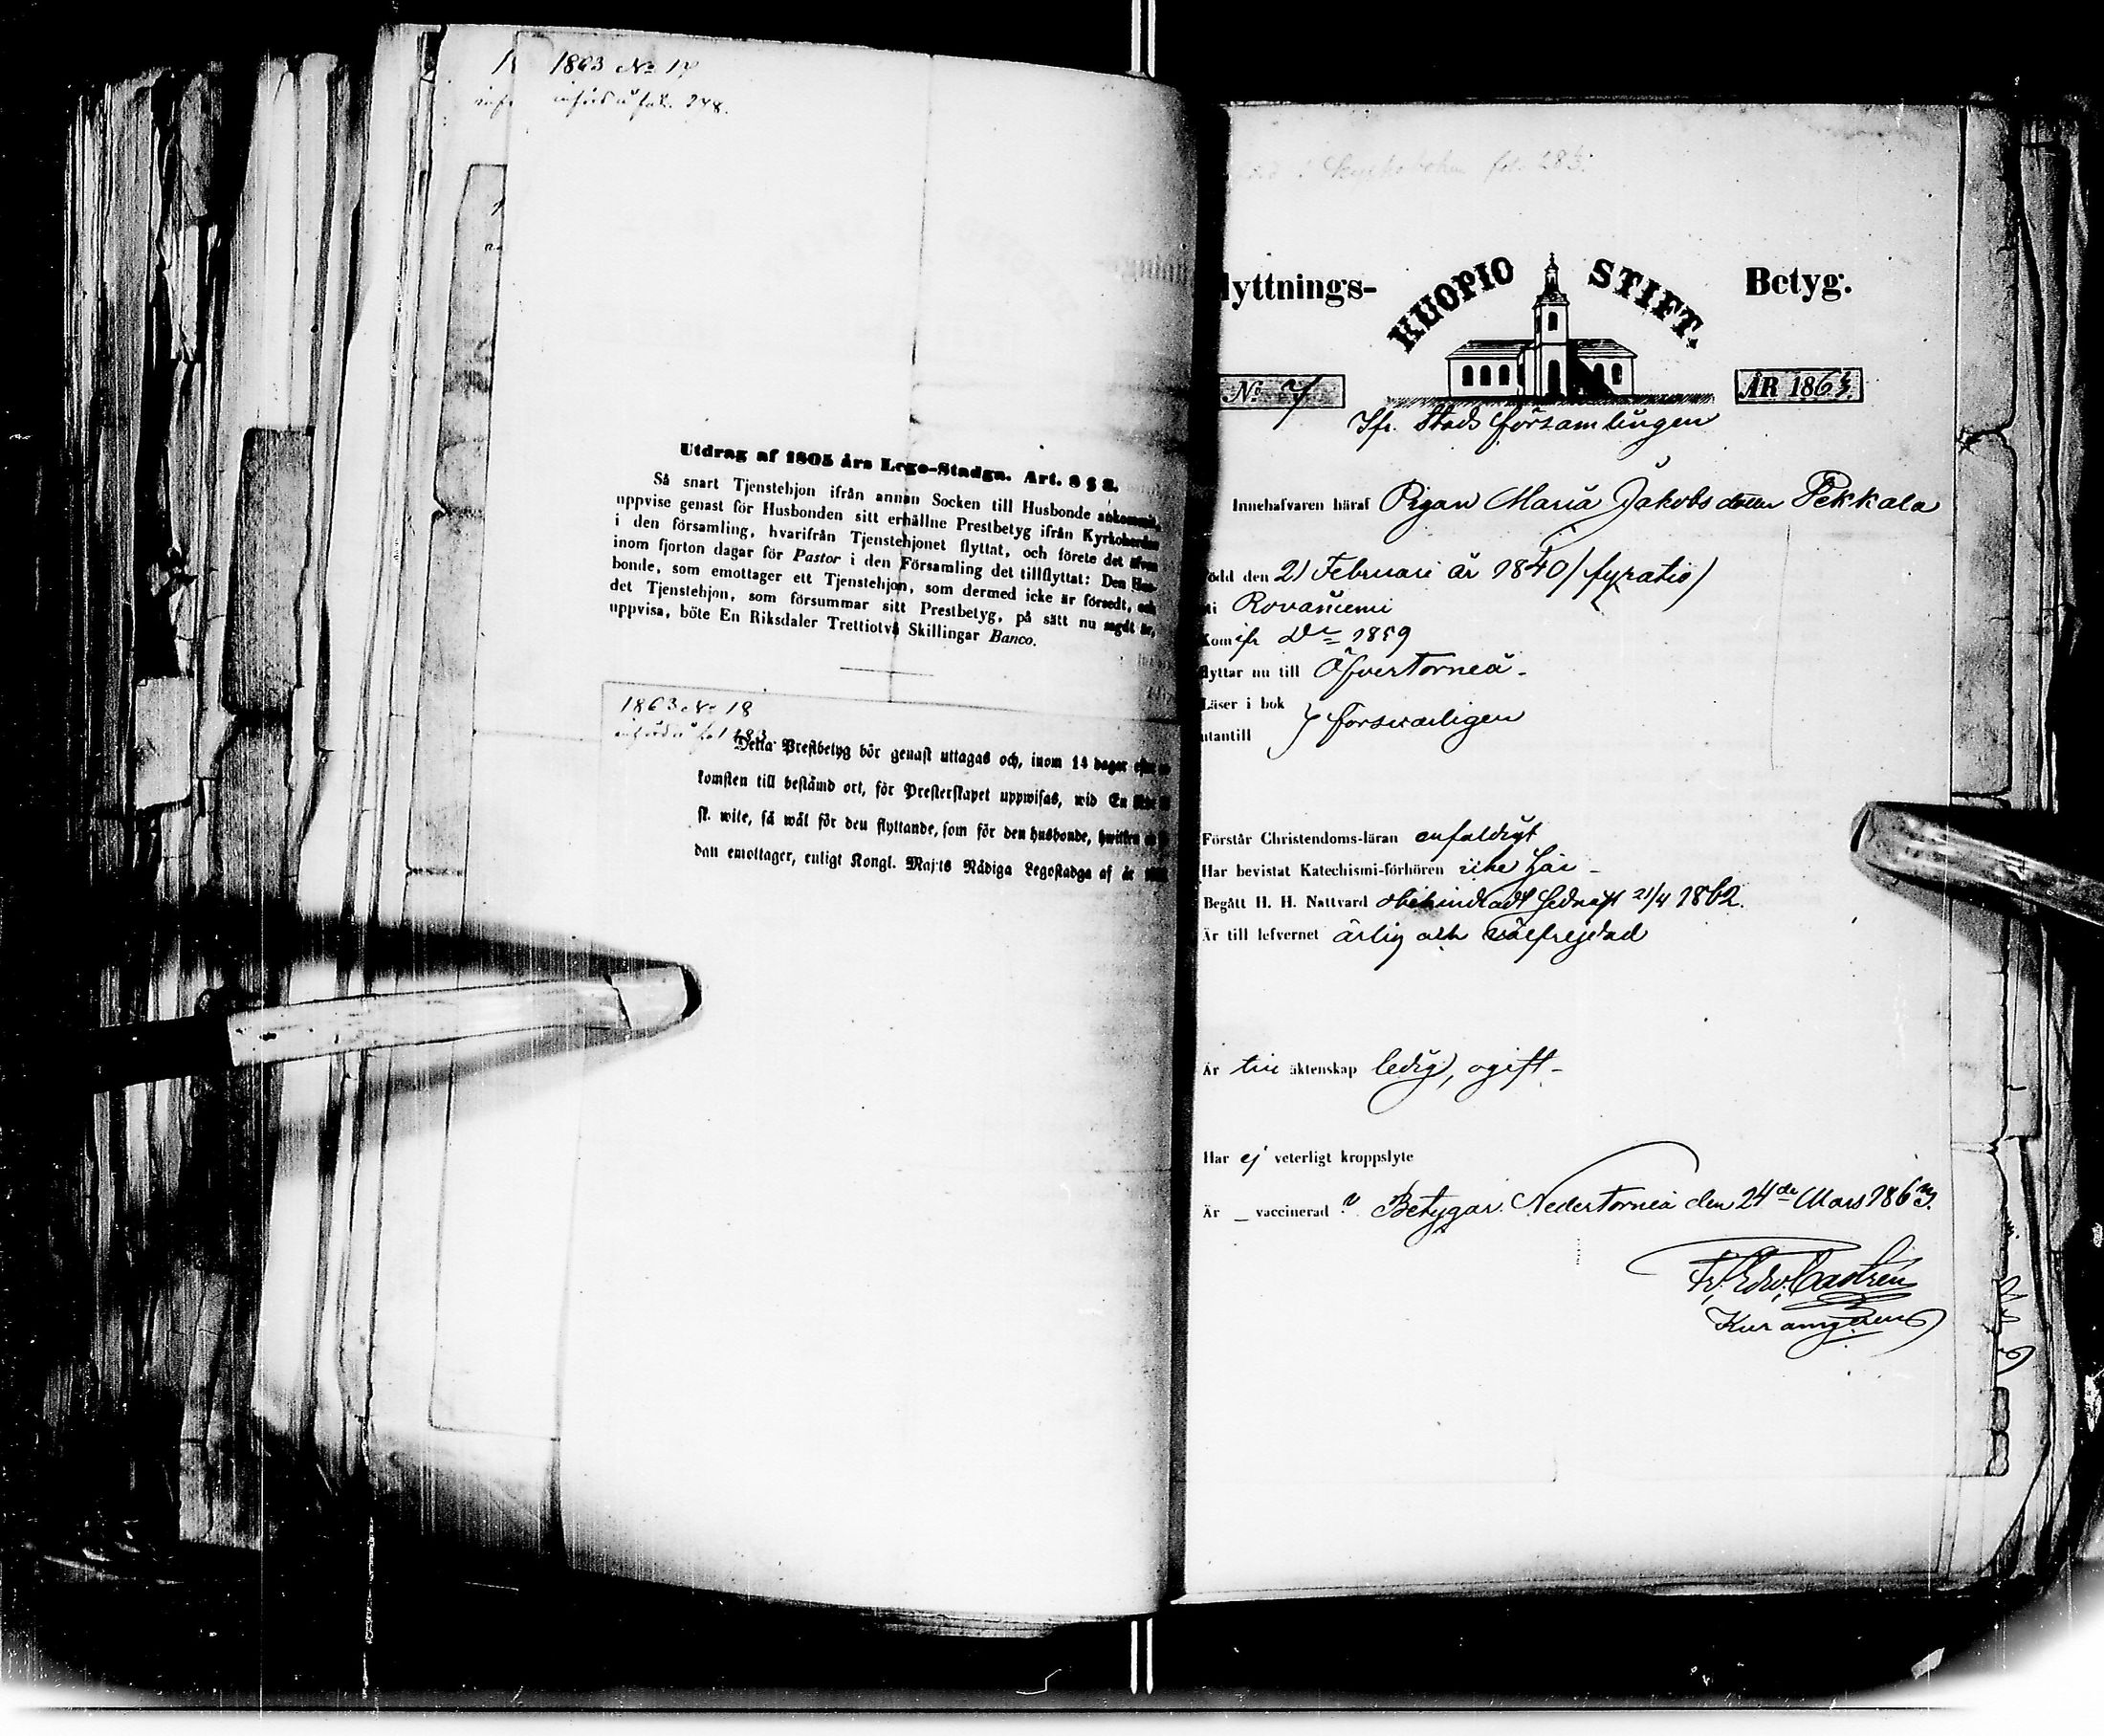 1863 No 17
införd å fol. 248.
Utdrag af 1805 års Lego-Stadga. Art. 8 § 8.
Så snart Tjenstehjon ifrån annan Socken till Husbonde ankommit,
uppvise genast för Husbonden sitt erhållne Prestbetyg ifrån Kyrkoherden
i den församling, hvarifrån Tjenstehjonet flyttat, och förete det äfven
inom fjorton dagar för Pastor i den Församling det tillflyttat: Den Hus-
bonde, som emottager ett Tjenstehjon, som dermed icke är försedt, och
det Tjenstehjon, som försummar sitt Prestbetyg, på sätt nu sagdt är,
uppvisa, böte En Riksdaler Trettiotvå Skillingar Banco.
1863 No 18
införd å fol 283
Detta Prestbetyg bör genast uttagas och, inom 14 dagar efter
komsten till bestämd ort, för Presterskapet uppwisas, wid En
sk. wite, så wäl för den flyttande, som för den husbonde, hwilken
dan emottager, enligt Kongl. Maj:ts Nådiga Legostadga af år
fol. 283.
lyttnings- KUOPIO STIFT. Betyg.
No 7 ÅR 1863
Ifr. Stads församlingen
Innehafvaren häraf Pigan Maria Jakobs dotter Pekkala
ödd den 21 Februari år 1840 / fyratio /
i Rovaniemi
Kom ifr Do 1859
flyttar nu till Öfvertorneå -
Läser i bok
utantill } försvarligen
Förstår Christendoms-läran enfaldigt
Har bevistat Katechismi-förhören icke här -
Begått H. H. Nattvard obehindradt sednast 21/4 1862.
Är till lefvernet ärlig och välfrejdad
Är till äktenskap ledig, ogift -
Har ej veterligt kroppslyte
Är _ vaccinerad ? Betygar. Nedertorneå den 24de Mars 1863.
Fr. Edv. Castrén